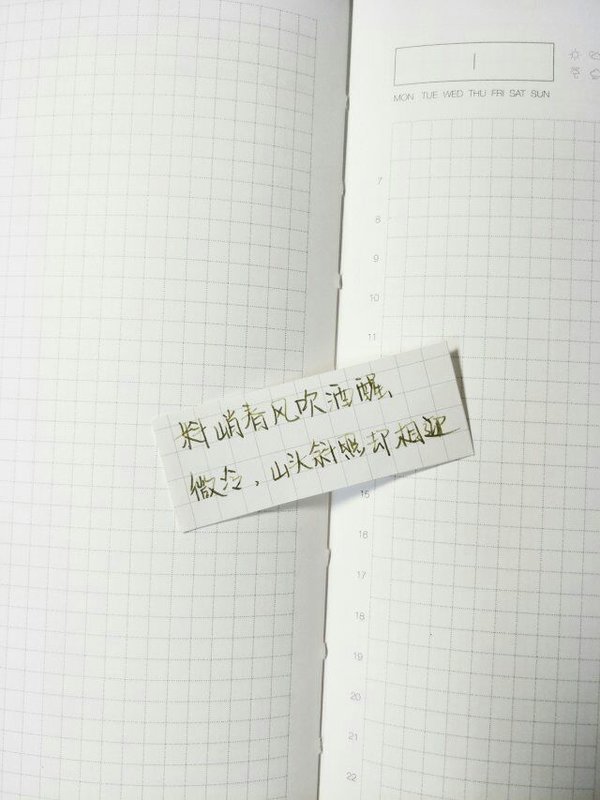 MON TUE WED THU FRI SAT SUN
7
8
9
10
11
料峭春风吹酒醒、
微冷，山头斜照却相迎
15
16
17
18
19
20
21
22